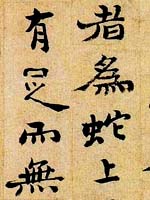 者為蛇上
有足而無